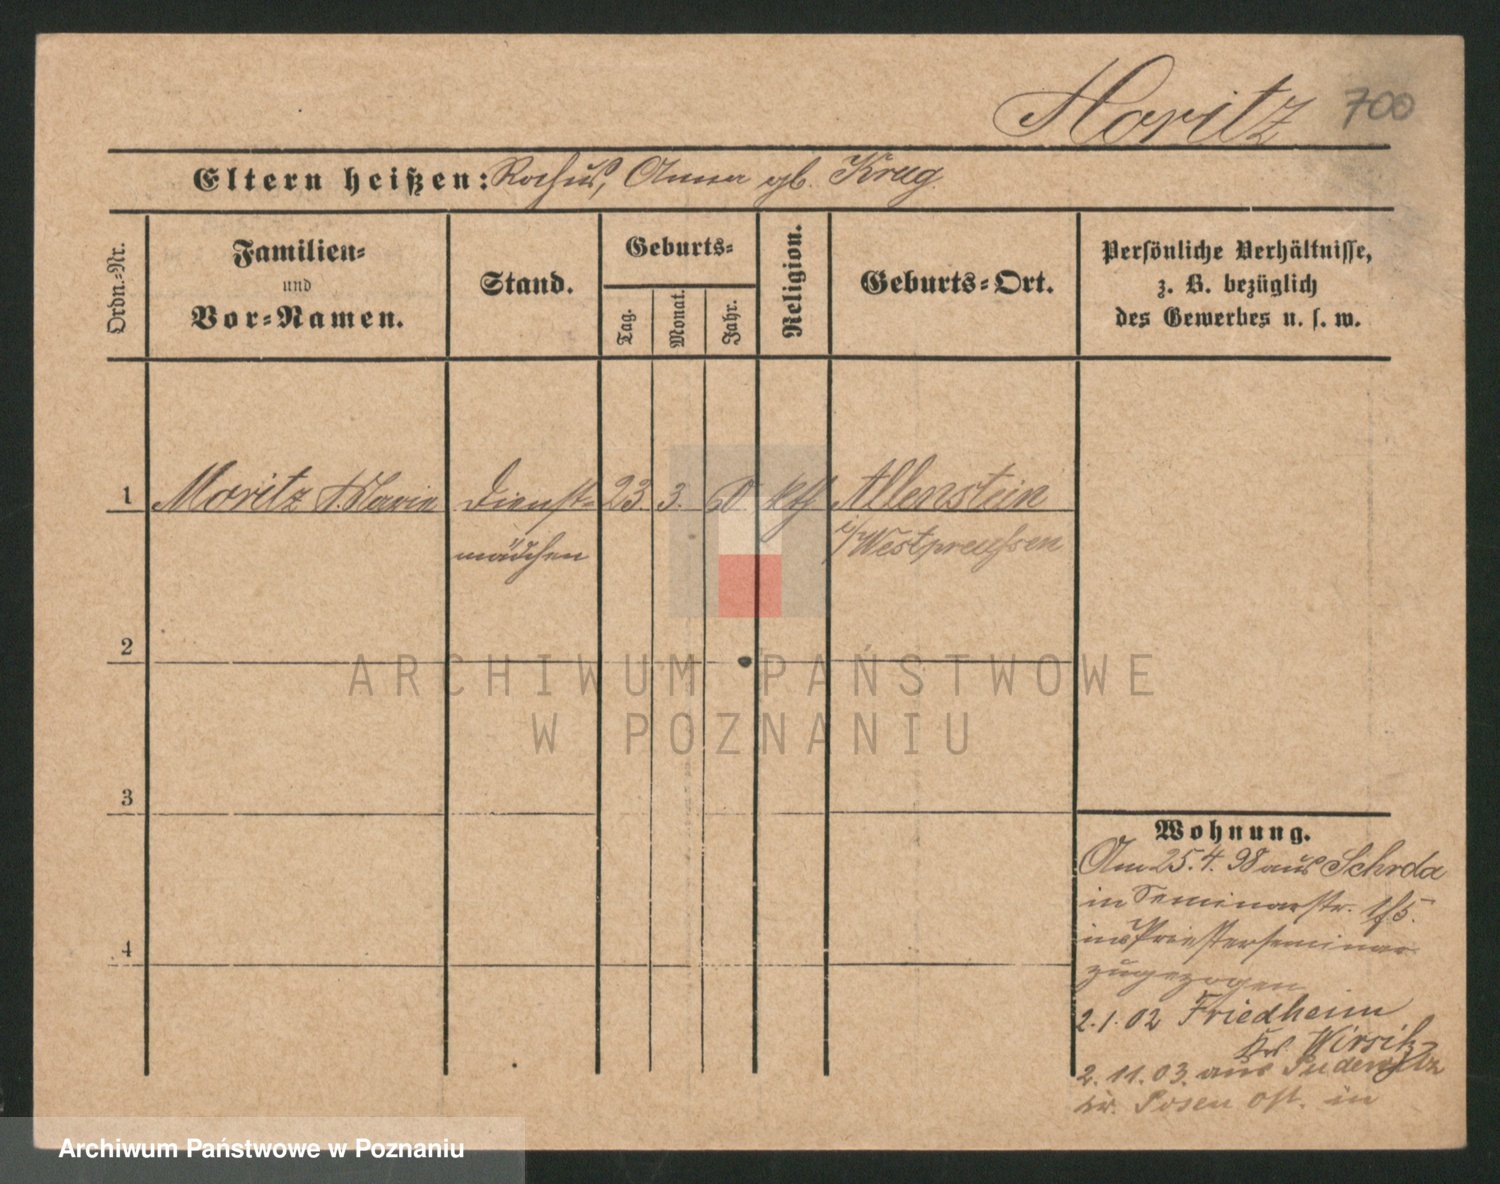 Moritz 700
Eltern heißen: Rochus, Anna gb. Krug
Ordn.-Nr.
Familien-
und
Vor-Namen.
Stand.
Geburts-
Tag.
Monat.
Jahr.
Religion.
Geburts-Ort.
Persönliche Verhältnisse,
z. B. bezüglich
des Gewerbes u. s. w.
1 Moritz Marie Dienst- 23. 3. 60 kth Allenstein
mädchen Westpreußen
2
ARCHIWUM PAŃSTWOWE
W POZNANIU
3
Wohnung.
Am 25.4.98 aus Schrda
in Seminarstr.
ins Priesterseminar
zugezogen
4
2.1.02 Friedheim
Kr. Wirsitz
2.11.03. aus Pudewitz
Kr. Posen Ost. in
Archiwum Państwowe w Poznaniu